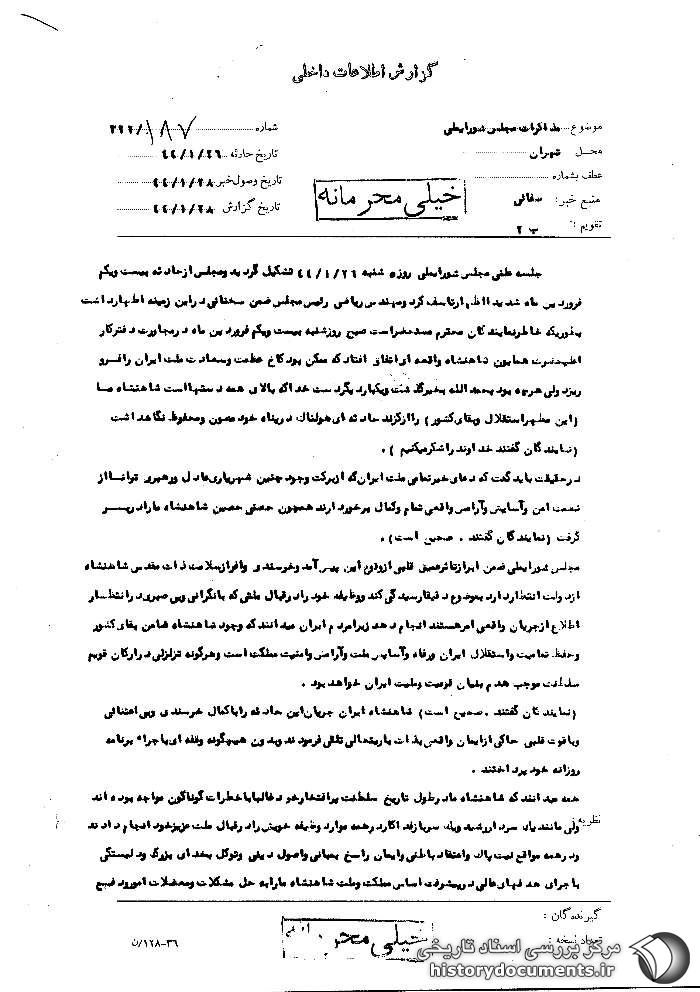 گزارش اطلاعات داخلی
موضوع مذاکرات مجلس شورایملی
محل تهران
عطف بشماره
منبع خبر: سفائی
تقویم: ب ۲
شماره ۳۲۲/۱۸۷
تاریخ حادثه ۴۴/۱/۲۶
تاریخ وصول خبر ۴۴/۱/۲۸
تاریخ گزارش ۴۴/۱/۲۸
خیلی محرمانه
جلسه علنی مجلس شورایملی روز شنبه ۴۴/۱/۲۶ تشکیل گردید ومجلس از حادثه بیست ویکم
فروردین ماه شدیدا اظهار تاسف کرد ومهندس ریاضی رئیس مجلس ضمن سخنانی دراین زمینه اظهار داشت
بطوریکه خاطر نمایندگان محترم مستحضراست صبح روزشنبه بیست ویکم فروردین ماه درمجاورت دفترکار
اعلیحضرت همایون شاهنشاه واقعه ای اتفاق افتاد که ممکن بود کاخ عظمت وسعادت ملت ایران را فرو
ریزد ولی هرچه بود بحمدالله بخیرگذشت ویکبار دیگر دست خدا که بالای همه دستها است شاهنشاه ما
(این مظهر استقلال وبقای کشور) را از گزند حادثه ای هولناک درپناه خود مصون ومحفوظ نگاهداشت
(نمایندگان گفتند خداوند را شکر میکنیم).
درحقیقت باید گفت که دعای خیر تمامی ملت ایران که از برکت وجود چنین شهریاری عادل ورهبری توانا از
نعمت امن وآسایش وآرامش واقعی تمام وکمال برخوردارند همچون حصنی حصین شاهنشاه ما را در بر
گرفت (نمایندگان گفتند . صحیح است).
مجلس شورایملی ضمن ابراز تاثر عمیق قلبی از وقوع این پیش آمد وخرسندی وافر از سلامت ذات مقدس شاهنشاه
از دولت انتظار دارد بموضوع دقیقا رسیدگی کند ووظیفه خود را درقبال ملتی که با نگرانی وبی صبری درانتظار
اطلاع از جریان واقعی امر هستند انجام دهد زیرا مردم ایران میدانند که وجود شاهنشاه ضامن بقای کشور
وحفظ تمامیت واستقلال ایران ورفاه وآسایش ملت وآرامش وامنیت مملکت است وهرگونه تزلزلی در ارکان قویم
سلطنت موجب هدم بنیان قومیت وملیت ایران خواهد بود .
(نمایندگان گفتند . صحیح است) شاهنشاه ایران جریان این حادثه را با کمال خرسندی وبی اعتنائی
وبا قوت قلبی حاکی از ایمان واقعی بذات باریتعالی تلقی فرمودند وبدون هیچگونه وقفه ای باجراء برنامه
روزانه خود پرداختند .
همه میدانند که شاهنشاه ما درطول تاریخ سلطنت پرافتخار خود غالبا با خطرات گوناگون مواجه بوده اند
نظریه:
ولی مانند یک سردار رشید ویک سرباز فداکار درهمه موارد وظیفه خویش را درقبال ملت عزیز خود انجام داده اند
ودرهمه مواقع نیت پاک واعتقاد باطنی وایمان راسخ بمبانی واصول دینی وتوکل بخدای بزرگ ودلبستگی
باجرای هدفهای عالی درپیشرفت اساس مملکت وملت شاهنشاه ما را به حل مشکلات ومعضلات امور ود فع
گیرندگان :
تعداد نسخه :
خیلی محر
۱۲۸-۳۶/ن
مرکز بررسی اسناد تاریخی
historydocuments.ir